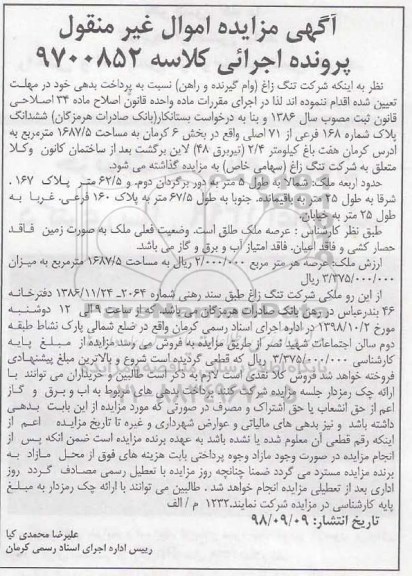 آگهی مزایده اموال غیر منقول
پرونده اجرائی کلاسه ۹۷۰۰۸۵۲
نظر به اینکه شرکت تنگ زاغ (وام گیرنده و راهن) نسبت به پرداخت بدهی خود در مهلت
تعیین شده اقدام ننموده اند لذا در اجرای مقررات ماده واحده قانون اصلاح ماده ۳۴ اصلاحی
قانون ثبت مصوب سال ۱۳۸۶ و بنا به درخواست بستانکار(بانک صادرات هرمزگان) ششدانگ
پلاک شماره ۱۶۸ فرعی از ۷۱ اصلی واقع در بخش ۶ کرمان به مساحت ۱۶۸۷/۵ مترمربع به
آدرس کرمان هفت باغ کیلومتر ۲/۴ (تیربرق ۴۸) لاین برگشت بعد از ساختمان کانون وکلا
متعلق به شرکت تنگ زاغ (سهامی خاص) به مزایده گذاشته می شود.
حدود اربعه ملک: شمالا به طول ۵ متر به دور برگردان دوم، و ۶۲/۵ متر پلاک ۱۶۷.
شرقا به طول ۲۵ متر به باقیمانده. جنوبا به طول ۶۷/۵ متر به پلاک ۱۶۰ فرعی. غربا به
طول ۲۵ متر به خیابان.
طبق نظر کارشناس : عرصه ملک طلق است. وضعیت فعلی ملک به صورت زمین فاقد
حصار کشی و فاقد اعیان. فاقد امتیاز آب و برق و گاز می باشد.
ارزش ملک: عرصه هر متر مربع ۲/۰۰۰/۰۰۰ ریال به مساحت ۱۶۸۷/۵ مترمربع به میزان
۳/۳۷۵/۰۰۰/۰۰۰ ریال
از این رو ملکی شرکت تنگ زاغ طبق سند رهنی شماره ۲۰۶۴ـ ۱۳۸۶/۱۱/۲۴ دفترخانه
۴۶ بندرعباس در رهن بانک صادرات هرمزگان می باشد، که از ساعت ۹ الی ۱۲ دوشنبه
مورخ ۱۳۹۸/۱۰/۲ در اداره اجرای اسناد رسمی کرمان واقع در ضلع شمالی پارک نشاط طبقه
دوم سالن اجتماعات شهید نصر از طریق مزایده به فروش می رسد مزایده از مبلغ پایه
کارشناسی ۳/۳۷۵/۰۰۰/۰۰۰ ریال که قطعی گردیده است شروع و بالاترین مبلغ پیشنهادی
فروخته خواهد شد فروش کلا نقدی است لازم به ذکر است طالبین و خریداران می توانند با
ارائه چک رمزدار جلسه مزایده شرکت کنند پرداخت بدهی های مربوط به آب و برق و گاز
اعم از حق انشعاب یا حق اشتراک و مصرف در صورتی که مورد مزایده از این بابت بدهی
داشته باشد و نیز بدهی های مالیاتی و عوارض شهرداری و غیره تا تاریخ مزایده اعم از
اینکه رقم قطعی آن معلوم شده یا نشده باشد به عهده برنده مزایده است ضمن آنکه پس از
انجام مزایده در صورت وجود مازاد وجوه پرداختی بابت هزینه های فوق از محل مازاد به
برنده مزایده مسترد می گردد ضمنا چنانچه روز مزایده با تعطیل رسمی مصادف گردد روز
اداری بعد از تعطیلی مزایده انجام خواهد شد . طالبین می توانند با ارائه چک رمزدار به مبلغ
پایه کارشناسی در مزایده شرکت نمایند.۱۲۳۲ م / الف
تاریخ انتشار: ۹۸/۰۹/۰۹
علیرضا محمدی کیا
رییس اداره اجرای اسناد رسمی کرمان